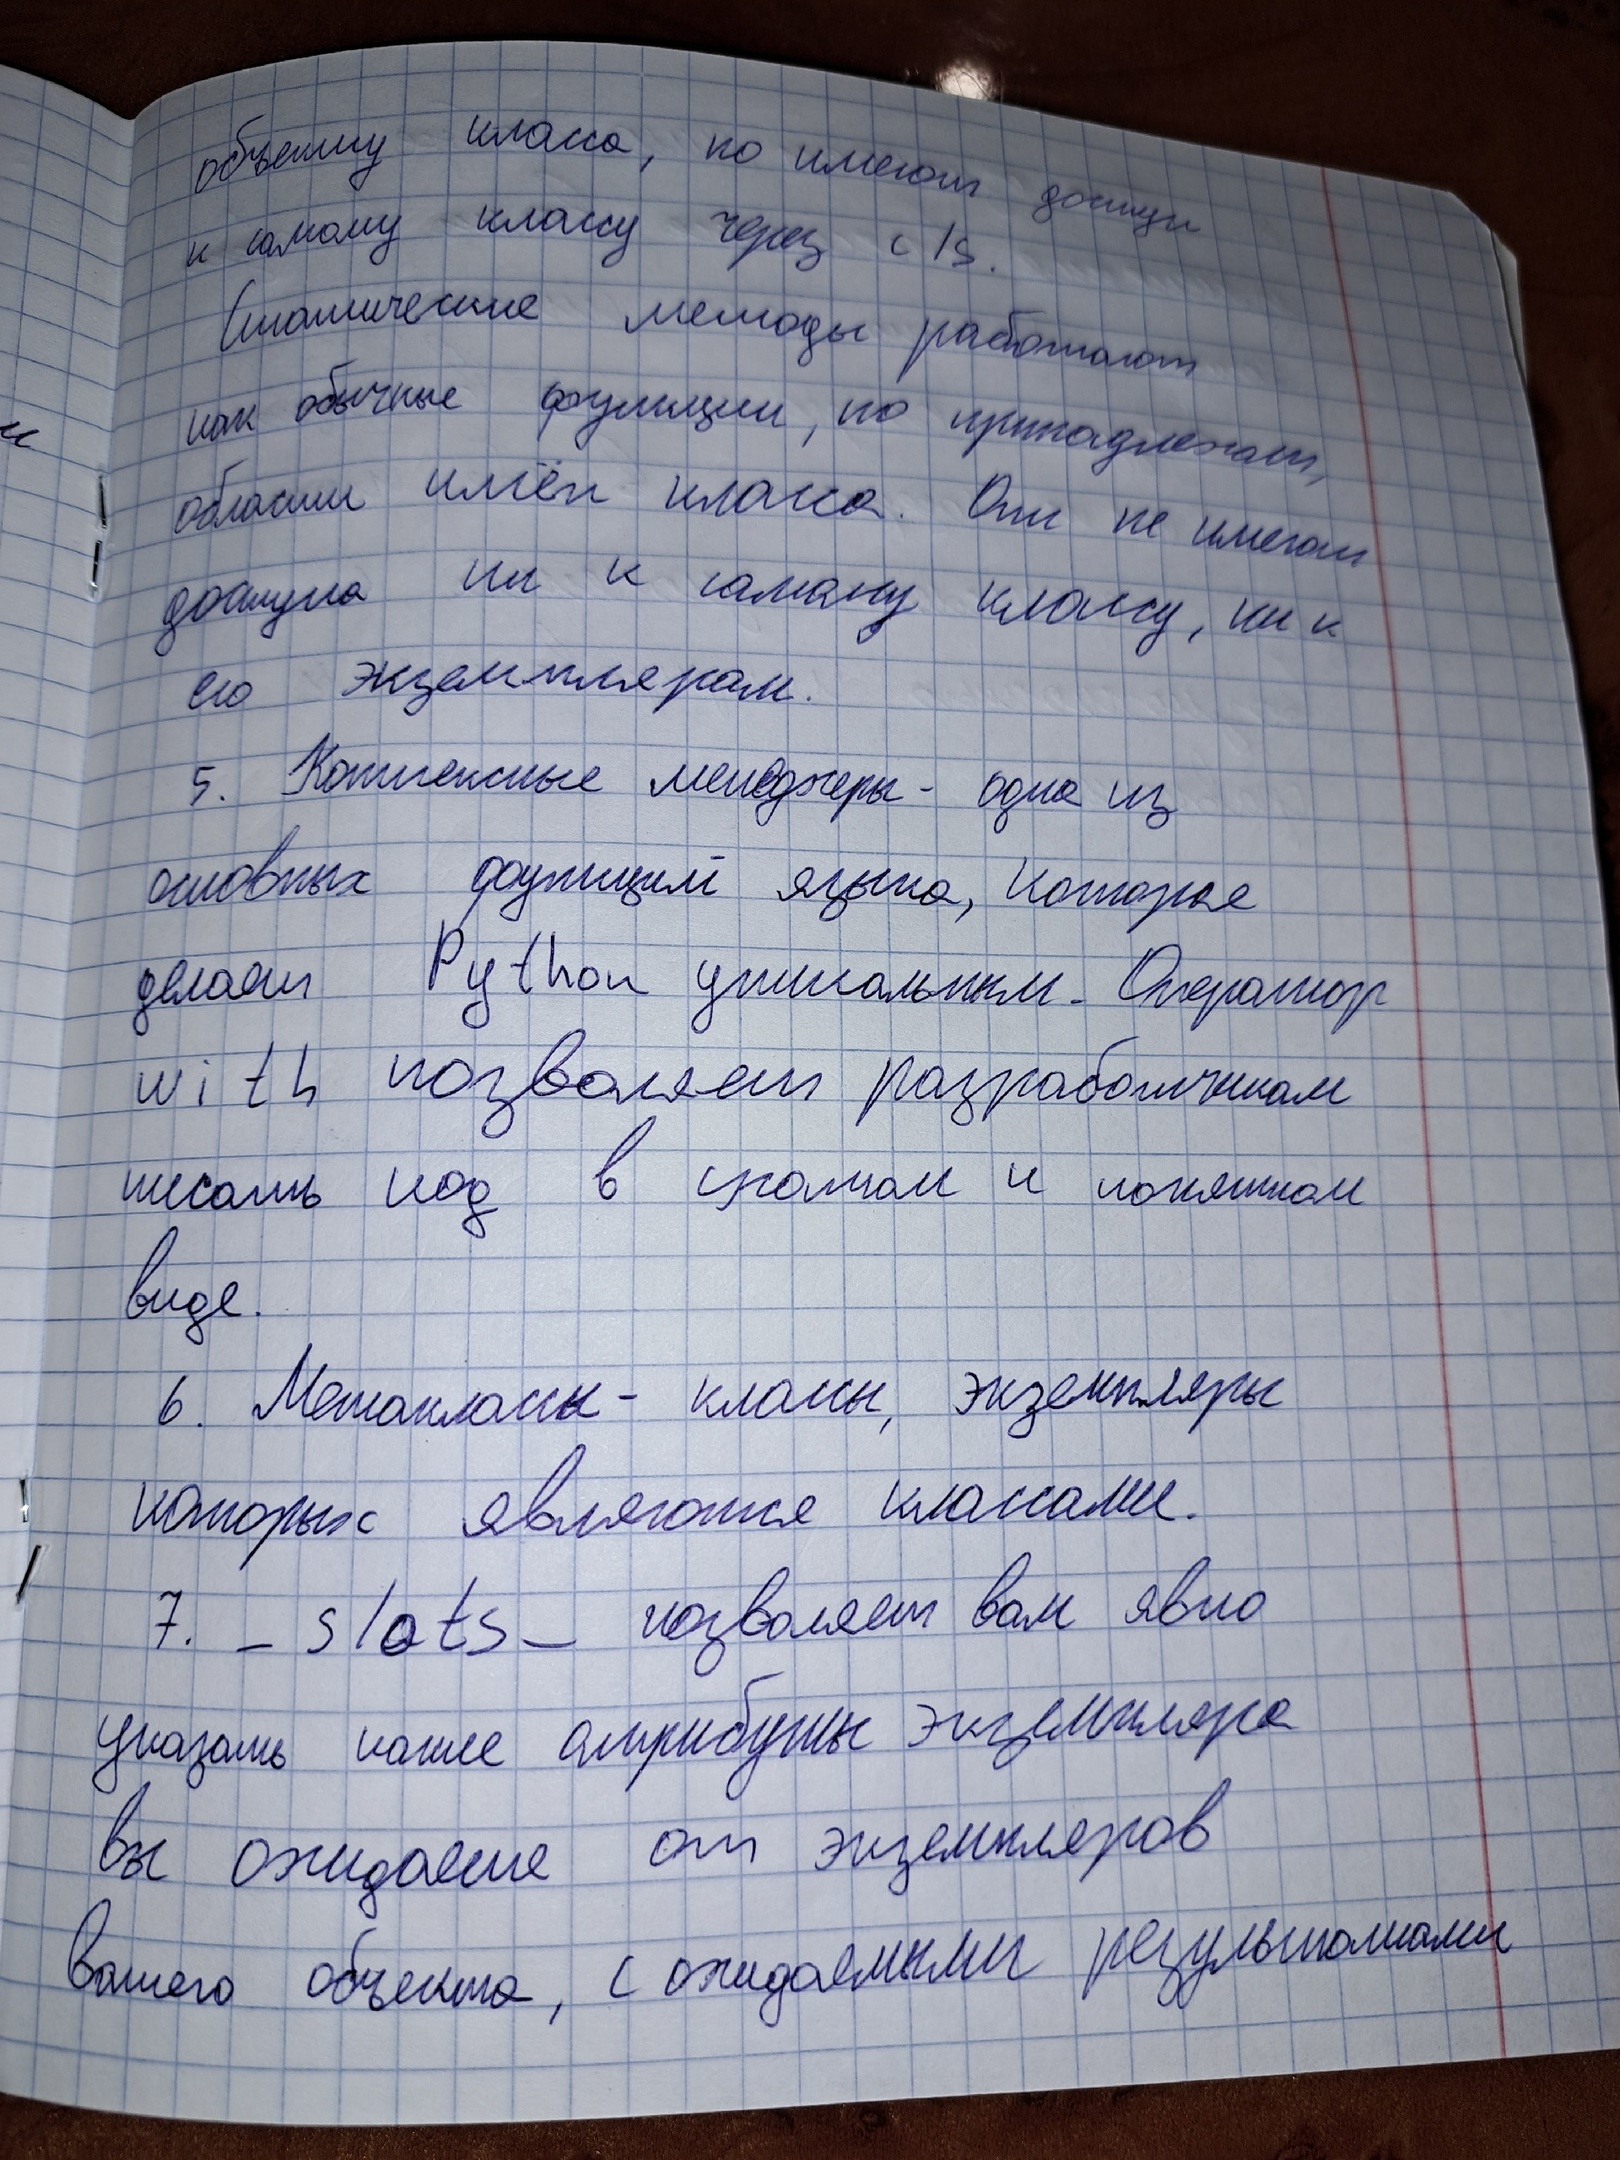 объекту класса, но имеют доступ
к самому классу через cls.
Статические методы работают
как обычные функции, но принадлежат,
области имён класса. Они не имеют
доступа ни к самому классу, ни к
его экземплярам.
5. Контексные менеджеры - одна из
основных функций языка, которые
делает Python уникальным. Оператор
with позволяет разработчикам
писать код в кратком и понятном
виде.
6. Метаклассы - классы, экземпляры
которых являются классами.
7. _ slots _ позволяет вам явно
указать какие атрибуты экземпляра
вы ожидаете от экземпляров
вашего объекта, с ожидаемыми результатами